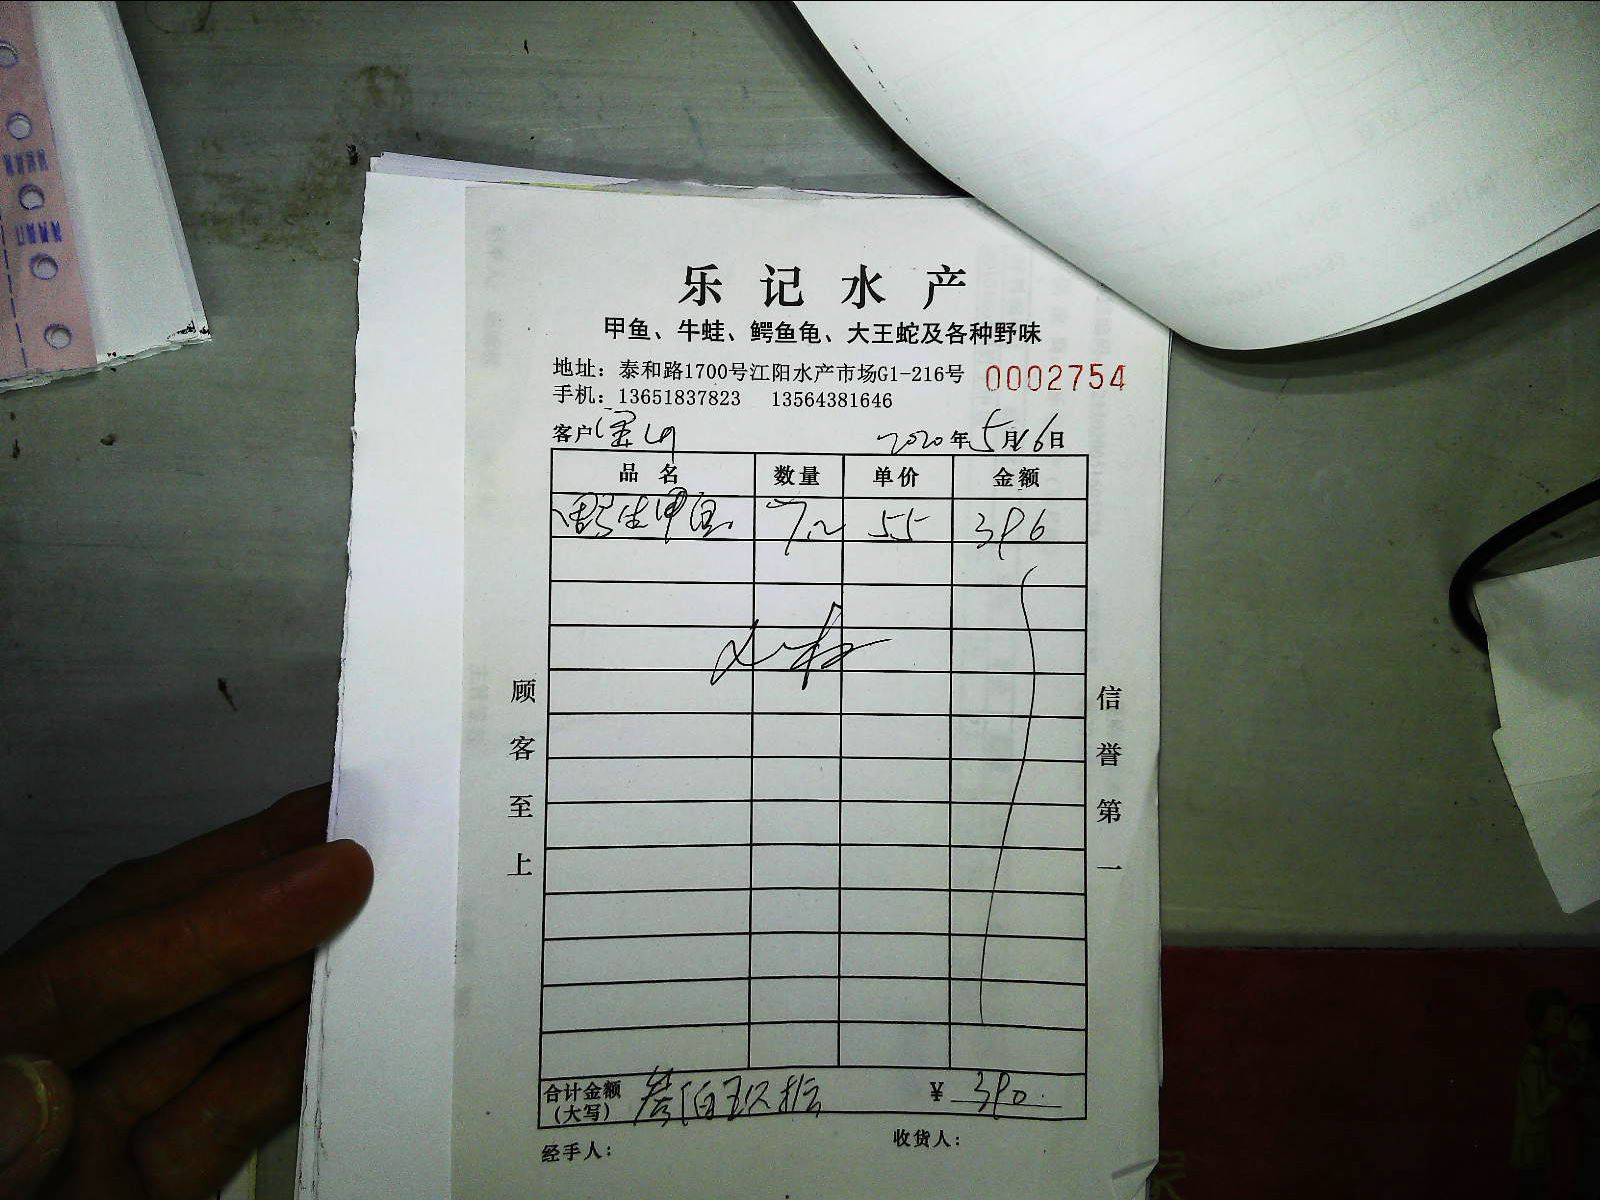 乐记水产
甲鱼、牛蛙、鳄鱼龟、大王蛇及各种野味
地址：泰和路1700号江阳水产市场G1-216号 0002754
手机：13651837823 13564381646
客户 2020年5月16日
品名 数量 单价 金额
野生甲鱼 7.2 55 396
顾客至上
信誉第一
合计金额（大写） 叁佰玖拾 ¥ 390.
经手人： 收货人：